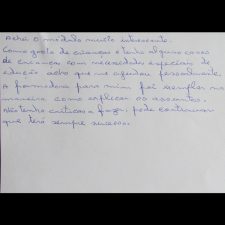 Achei o módulo muito interessante.
Como gosto de crianças e tenho alguns casos
de crianças com necessidades especiais de
educação acho que me ajudou pessoalmente.
A formadora para mim foi exemplar na
maneira como explicou os assuntos.
Não tenho críticas a fazer, pode continuar
que terá sempre sucesso.